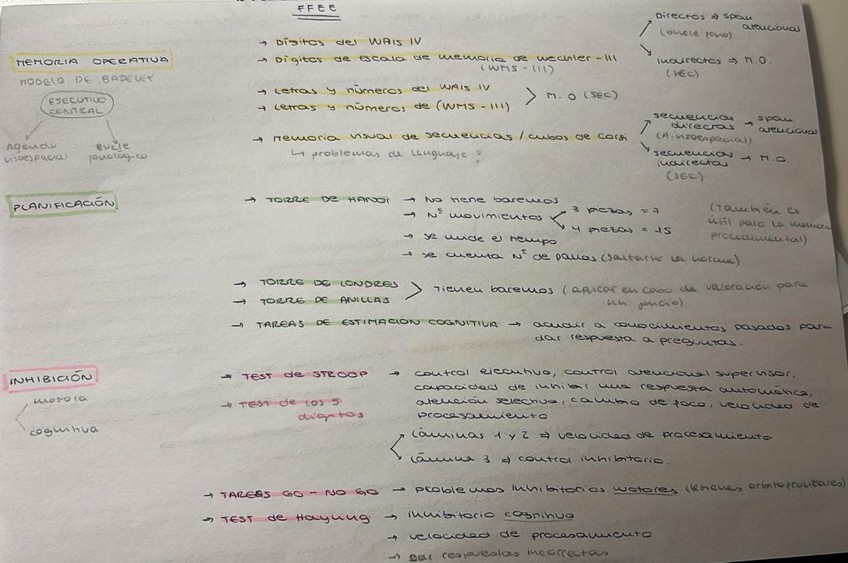 FFEE
MEMORIA OPERATIVA
MODELO DE BADELEY
EJECUTIVO
CENTRAL
Agenda
visoespacial
Bucle
fonológico
→ Dígitos del WAIS IV
→ Dígitos de escala de memoria de wechler-III
(WMS-III)
Directos → span
atencional
(bucle fono)
Indirectos → M.O.
(SEC)
→ Letras y números del WAIS IV
→ Letras y números de (WMS-III)
M.O (SEC)
→ Memoria visual de secuencias / cubos de Corsi
↳ problemas de lenguaje
secuencias
directas → span
atencional
(A. visoespacial)
secuencias
indirectas → M.O.
(SEC)
PLANIFICACIÓN
→ TORRE DE HANOI → No tiene baremos
→ Nº movimientos
3 piezas = 7
4 piezas = 15
→ se mide el tiempo
→ se cuenta Nº de fallos (saltarse la norma)
(También es
útil para la memoria
procedimental)
→ TORRE DE LONDRES
→ TORRE DE ANILLAS
Tienen baremos (aplicar en caso de valoración para
un juicio)
→ TAREAS DE ESTIMACIÓN COGNITIVA → acudir a conocimientos pasados para
dar respuesta a preguntas.
INHIBICIÓN
motora
cognitiva
→ TEST de STROOP → control ejecutivo, control atencional supervisor,
capacidad de inhibir una respuesta automática,
→ TEST de los 5
dígitos
atención selectiva, cambio de foco, velocidad de
procesamiento
Láminas 1 y 2 ⇒ velocidad de procesamiento
Lámina 3 ⇒ control inhibitorio.
→ TAREAS GO - NO GO → problemas inhibitorios motores (lesiones orbitofrontales)
→ TEST de Hayling → inhibitorio cognitivo
→ velocidad de procesamiento
→ dar respuestas incorrectas